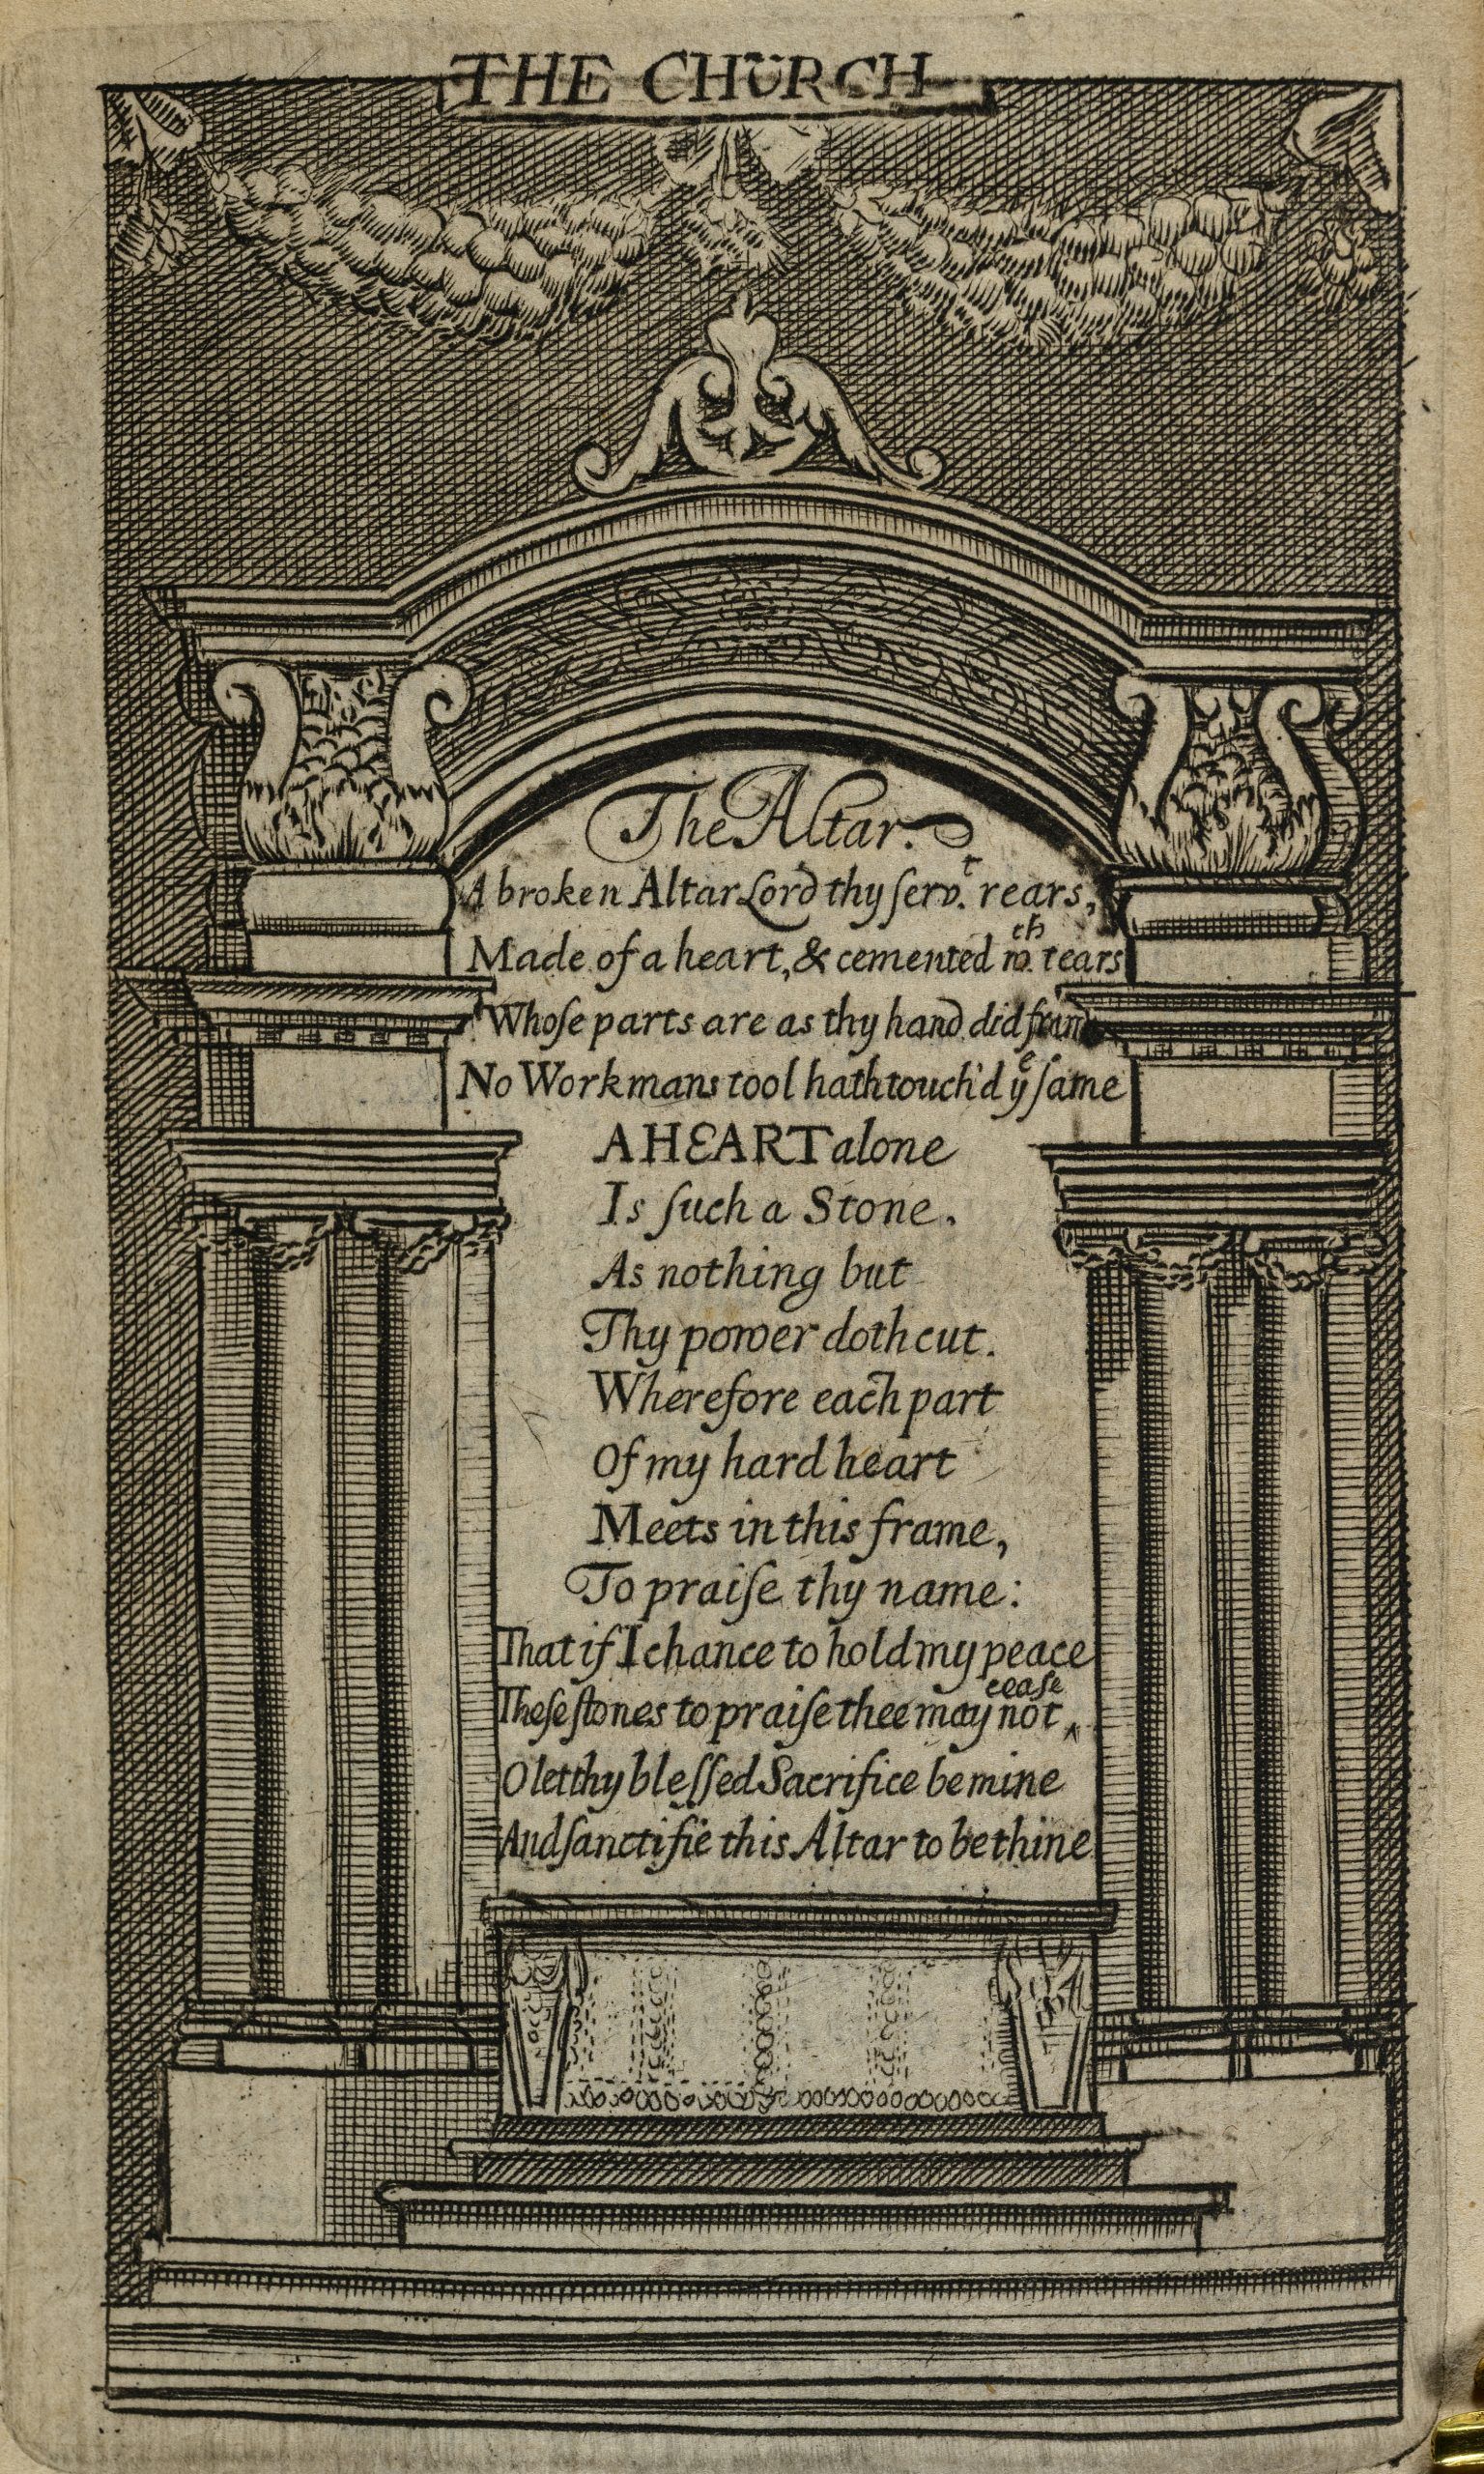 THE CHURCH
The Altar.
A broken Altar Lord thy ſerv.ᵗ rears,
Made of a heart, & cemented w.ᵗʰ tears
Whoſe parts are as thy hand did frame
No Workmans tool hath touch'd yᵉ ſame
A HEART alone
Is ſuch a Stone.
As nothing but
Thy power doth cut.
Wherefore each part
Of my hard heart
Meets in this frame,
To praiſe thy name:
That if I chance to hold my peace
Theſe ſtones to praiſe thee may not ‸ceaſe
O let thy bleſſed Sacrifice be mine
And ſanctifie this Altar to be thine